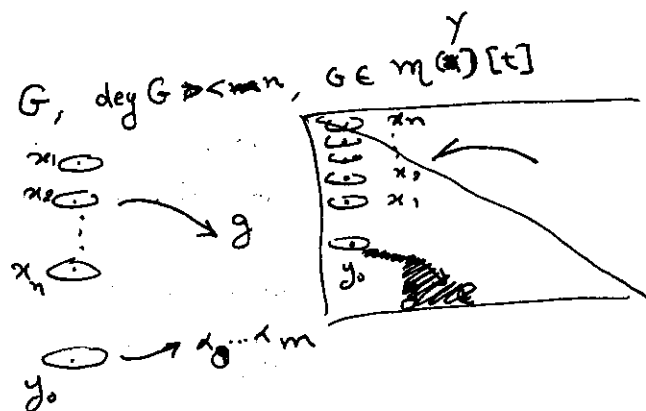 G, deg G < n, G ∈ m(Y)[t]
x₁
x₂
⋮
xₙ
g
y₀
α₀ ... αₘ
xₙ
⋮
x₂
x₁
y₀